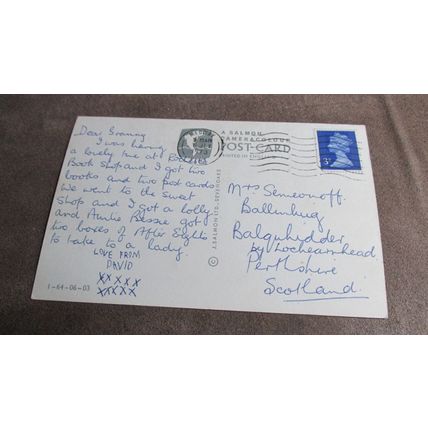 Dear Granny
I was having
a lovely time at
Book Shop and I got two
books and two post cards
We went to the sweet
Shop and I got a lolly
and Auntie Bessie got
two boxes of After Eights
to take to a lady.
LOVE FROM
DAVID
XXXXX
XXXXX
1-64-06-03
A SALMON
CAMERACOLOUR
POST-CARD
PRINTED IN ENGLAND
J. SALMON LTD., SEVENOAKS
©
3P
Mrs Semeonoff
Ballinluig
Balquhidder
by Lochearnhead
Perthshire
Scotland.